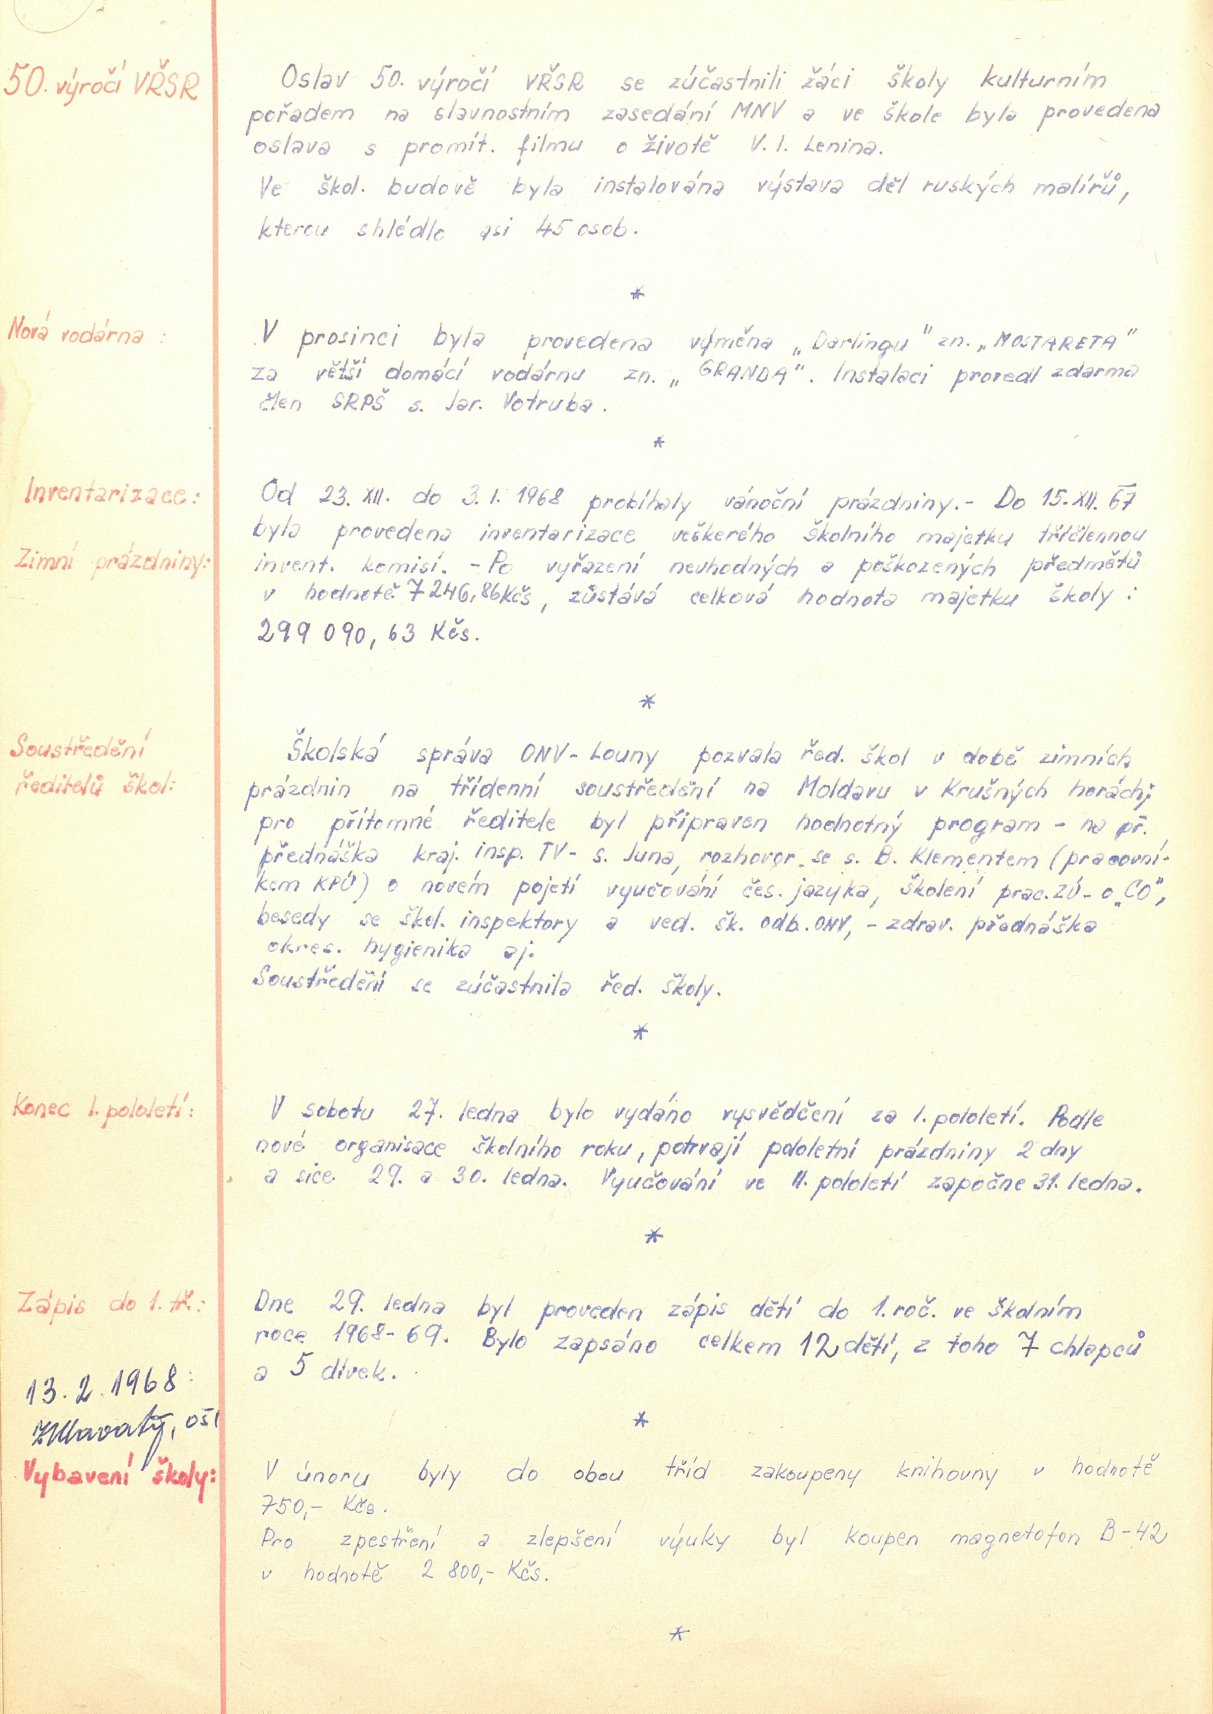 50. výročí VŘSR
Oslav 50. výročí VŘSR se zúčastnili žáci školy kulturním
pořadem na slavnostním zasedání MNV a ve škole byla provedena
oslava s promít. filmu o životě V. I. Lenina.
Ve škol. budově byla instalována výstava děl ruských malířů,
kterou shlédlo asi 45 osob.
*
Nová vodárna :
V prosinci byla provedena výměna „Darlingu" zn. „MOSTARETA"
za větší domácí vodárnu zn. „GRANDA". Instalaci provedl zdarma
člen SRPŠ s. Jar. Votruba.
*
Inventarizace:
Zimní prázdniny:
Od 23. XII. do 3. I. 1968 probíhaly vánoční prázdniny.- Do 15. XII. 67
byla provedena inventarizace veškerého školního majetku tříčlennou
invent. komisí. - Po vyřazení nevhodných a poškozených předmětů
v hodnotě 7 246,86 Kčs, zůstává celková hodnota majetku školy :
299 090, 63 Kčs.
*
Soustředění
ředitelů škol:
Školská správa ONV-Louny pozvala řed. škol v době zimních
prázdnin na třídenní soustředění na Moldavu v Krušných horách;
pro přítomné ředitele byl připraven hodnotný program - na př.
přednáška kraj. insp. TV- s. Juna, rozhovor se s. B. Klementem (pracovní-
kem KPÚ) o novém pojetí vyučování čes. jazyka, školení prac. ZÚ - o „CO",
besedy se škol. inspektory a ved. šk. odb. ONV, - zdrav. přednáška
okres. hygienika aj.
Soustředění se zúčastnila řed. školy.
*
Konec 1. pololetí:
V sobotu 27. ledna bylo vydáno vysvědčení za 1. pololetí. Podle
nové organisace školního roku, potrvají pololetní prázdniny 2 dny
a sice 29. a 30. ledna. Vyučování ve II. pololetí započne 31. ledna.
*
Zápis do 1. tř.:
Dne 29. ledna byl proveden zápis dětí do 1. roč. ve školním
roce 1968-69. Bylo zapsáno celkem 12 dětí, z toho 7 chlapců
a 5 dívek.
13. 2. 1968:
Hlavatý, OŠI
*
Vybavení školy:
V únoru byly do obou tříd zakoupeny knihovny v hodnotě
750,- Kčs.
Pro zpestření a zlepšení výuky byl koupen magnetofon B-42
v hodnotě 2 800,- Kčs.
*